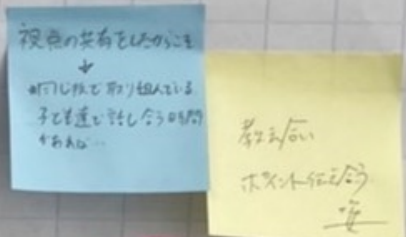 視点の共有をしたからこそ
↓
同じ板で取り組んでいる
子ども達で話し合う時間
があれば…
教え合い
ポイント伝え合う